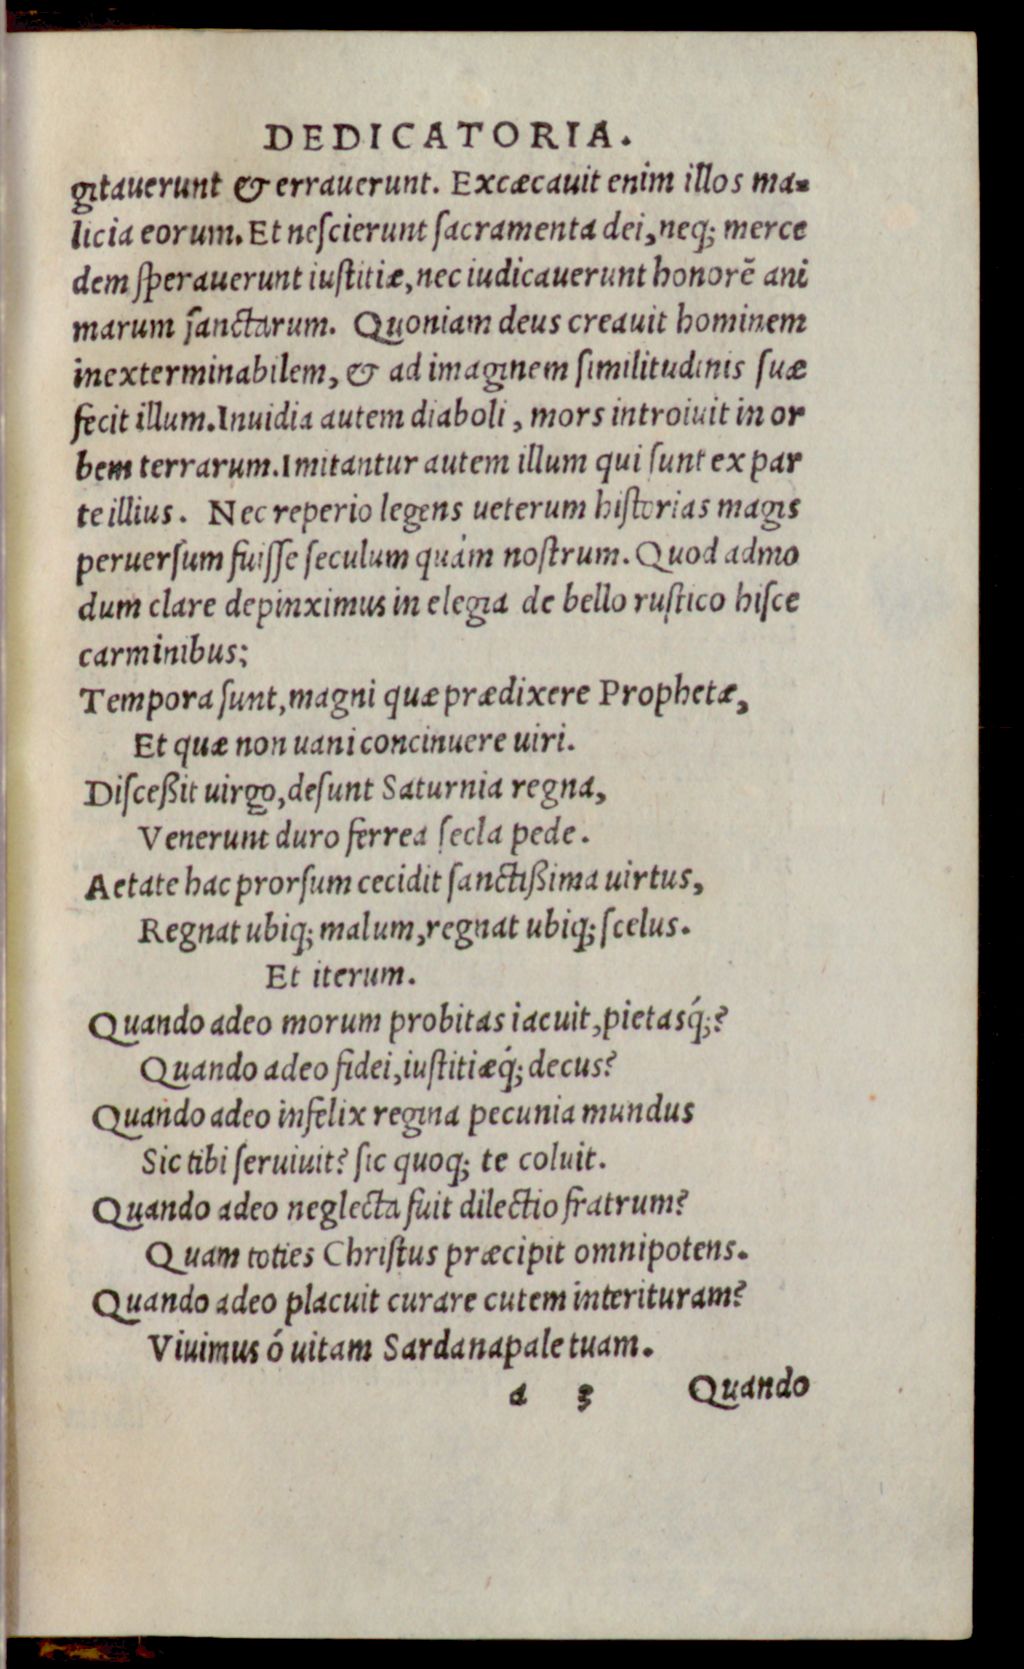 DEDICATORIA.
gitauerunt & errauerunt. Excæcauit enim illos ma-
licia eorum. Et neſcierunt ſacramenta dei, neq; merce
dem ſperauerunt iuſtitiæ, nec iudicauerunt honorē ani
marum ſanctarum. Quoniam deus creauit hominem
inexterminabilem, & ad imaginem ſimilitudinis ſuæ
fecit illum. Inuidia autem diaboli, mors introiuit in or
bem terrarum. Imitantur autem illum qui ſunt ex par
te illius. Nec reperio legens ueterum hiſtorias magis
peruerſum fuiſſe ſeculum quám noſtrum. Quod admo
dum clare depinximus in elegia de bello ruſtico hiſce
carminibus;
Tempora ſunt, magni quæ prædixere Prophetæ,
Et quæ non uani concinuere uiri.
Diſceßit uirgo, deſunt Saturnia regna,
Venerunt duro ferrea ſecla pede.
Aetate hac prorſum cecidit ſanctißima uirtus,
Regnat ubiq; malum, regnat ubiq; ſcelus.
Et iterum.
Quando adeo morum probitas iacuit, pietasq́;?
Quando adeo fidei, iuſtitiæq́; decus?
Quando adeo infelix regina pecunia mundus
Sic tibi ſeruiuit? ſic quoq; te coluit.
Quando adeo neglecta fuit dilectio fratrum?
Quam toties Chriſtus præcipit omnipotens.
Quando adeo placuit curare cutem interituram?
Viuimus ó uitam Sardanapale tuam.
a 3 Quando